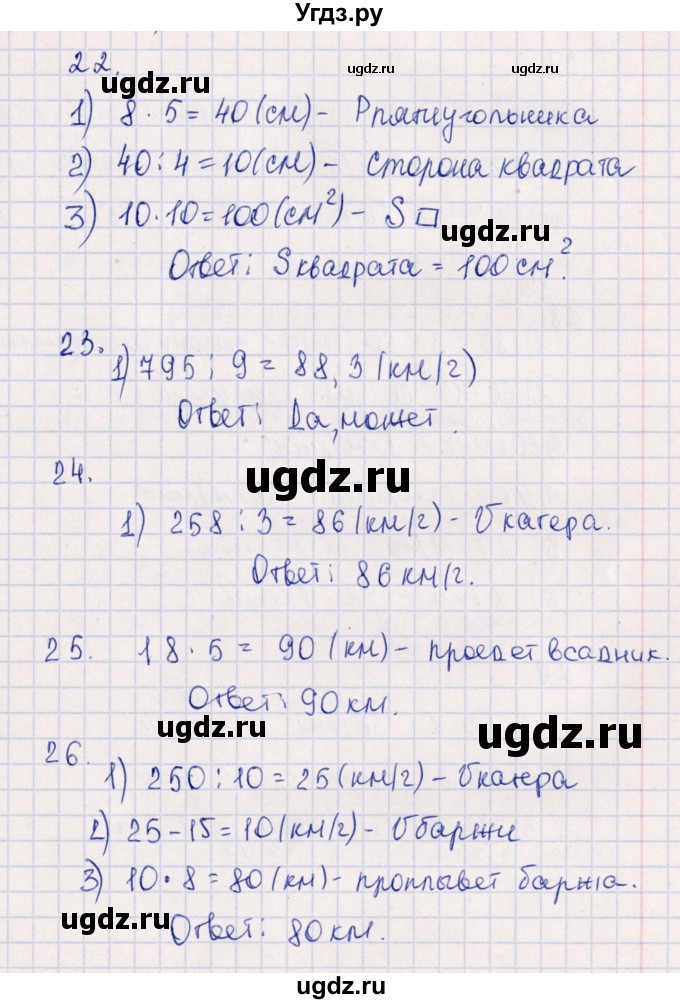 Угдз.ру
22.
ugdz.ru ugdz.ru ugdz.ru
1) 8 · 5 = 40 (см) - Pпятиугольника
2) 40 : 4 = 10 (см) - сторона квадрата
3) 10 · 10 = 100 (см²) - S □
ugdz.ru
Ответ: Sквадрата = 100 см².
23.
1) 795 : 9 = 88,3 (км/г)
Ответ: Да, может.
24.
ugdz.ru
1) 258 : 3 = 86 (км/г) - Vкатера.
Ответ: 86 км/г.
25. 18 · 5 = 90 (км) - проедет всадник.
Ответ: 90 км.
ugdz.ru ugdz.ru
26.
1) 250 : 10 = 25 (км/г) - Vкатера
2) 25 - 15 = 10 (км/г) - Vбаржи
3) 10 · 8 = 80 (км) - проплывет баржа.
ugdz.ru
Ответ: 80 км.
ugdz.ru ugdz.ru
ugdz.ru